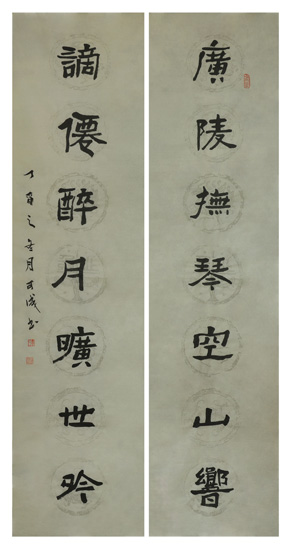 廣陵撫琴空山響
謫僊醉月曠世吟
丁酉之冬月 成書